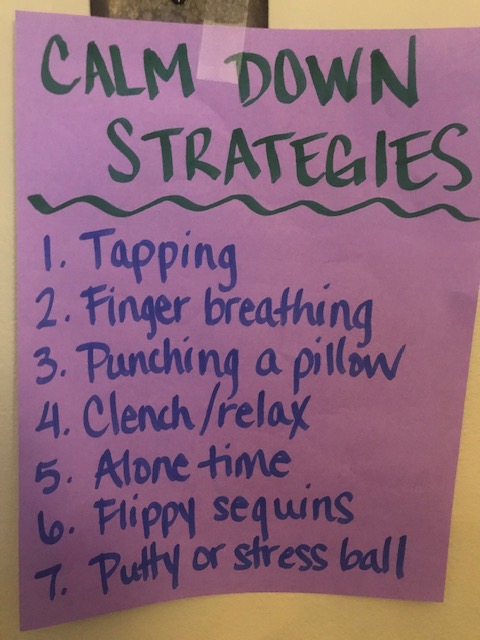 CALM DOWN
STRATEGIES
1. Tapping
2. Finger breathing
3. Punching a pillow
4. Clench/relax
5. Alone time
6. Flippy sequins
7. Putty or stress ball